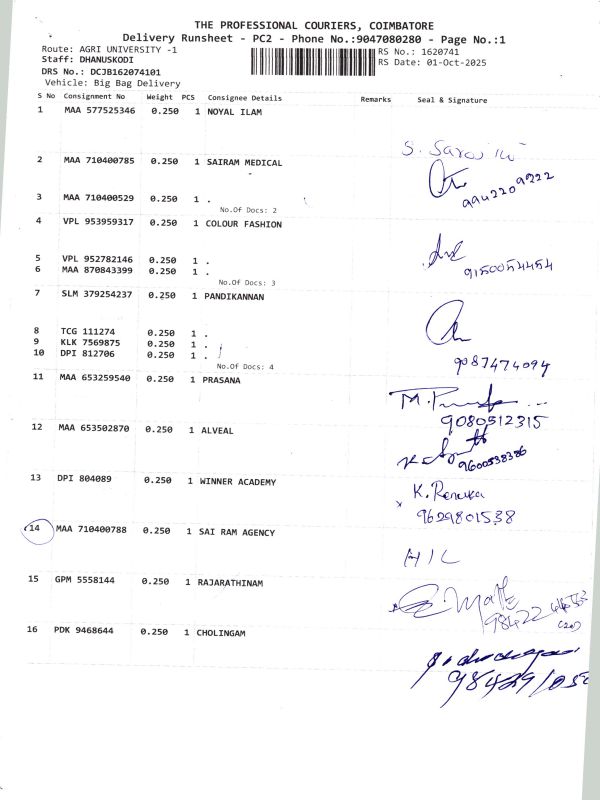 THE PROFESSIONAL COURIERS, COIMBATORE
Delivery Runsheet - PC2 - Phone No.:9047080280 - Page No.:1
Route: AGRI UNIVERSITY -1 RS No.: 1620741
Staff: DHANUSKODI RS Date: 01-Oct-2025
DRS No.: DCJB162074101
Vehicle: Big Bag Delivery
S No Consignment No Weight PCS Consignee Details Remarks Seal & Signature
1 MAA 577525346 0.250 1 NOYAL ILAM
2 MAA 710400785 0.250 1 SAIRAM MEDICAL
9942209222
3 MAA 710400529 0.250 1 .
No.Of Docs: 2
4 VPL 953959317 0.250 1 COLOUR FASHION
5 VPL 952782146 0.250 1 .
9150054454
6 MAA 870843399 0.250 1 .
No.Of Docs: 3
7 SLM 379254237 0.250 1 PANDIKANNAN
8 TCG 111274 0.250 1 .
9 KLK 7569875 0.250 1 .
10 DPI 812706 0.250 1 .
No.Of Docs: 4
9087474094
11 MAA 653259540 0.250 1 PRASANA
9080512315
12 MAA 653502870 0.250 1 ALVEAL
9600538386
13 DPI 804089 0.250 1 WINNER ACADEMY
K. Renuka
9629801538
14 MAA 710400788 0.250 1 SAI RAM AGENCY
H/L
15 GPM 5558144 0.250 1 RAJARATHINAM
16 PDK 9468644 0.250 1 CHOLINGAM